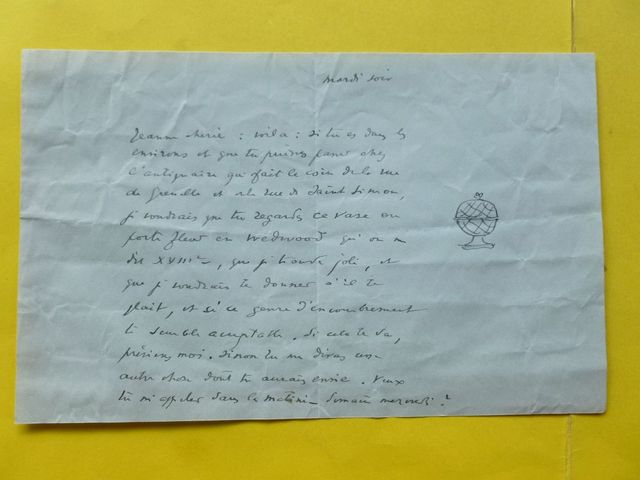 mardi soir
Jeanne chérie : voilà : si tu es dans les
environs et que tu puisses passer chez
l'antiquaire qui fait le coin de la rue
de Grenelle et de la rue de Saint Simon,
je voudrais que tu regardes ce vase ou
porte fleur en Wedwood qu'on me
dit XVIIIe, que je trouve joli, et
que je voudrais te donner s'il te
plait, et si ce genre d'encombrement
te semble acceptable. Si cela te va,
préviens moi. Sinon tu me diras une
autre chose dont tu aurais envie. Veux
tu m'appeler dans la matinée demain mercredi ?